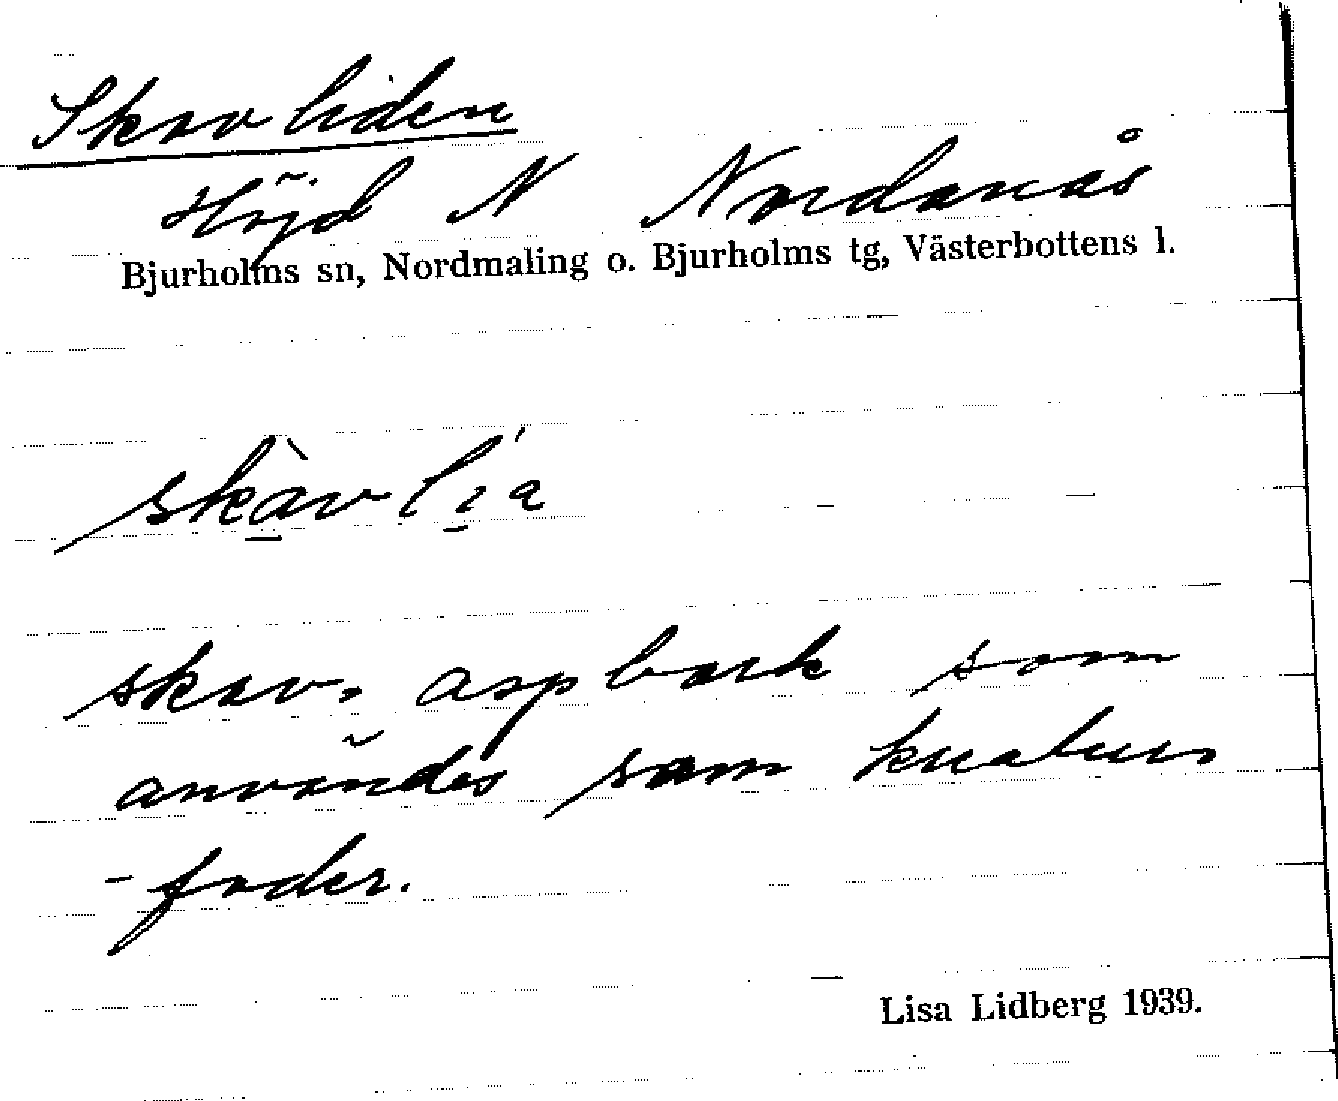 Skavliden
Höjd N Nordanås
Bjurholms sn, Nordmaling o. Bjurholms tg, Västerbottens l.
skàvlía
skav, aspbark som
användes som kreaturs
-foder.
Lisa Lidberg 1939.